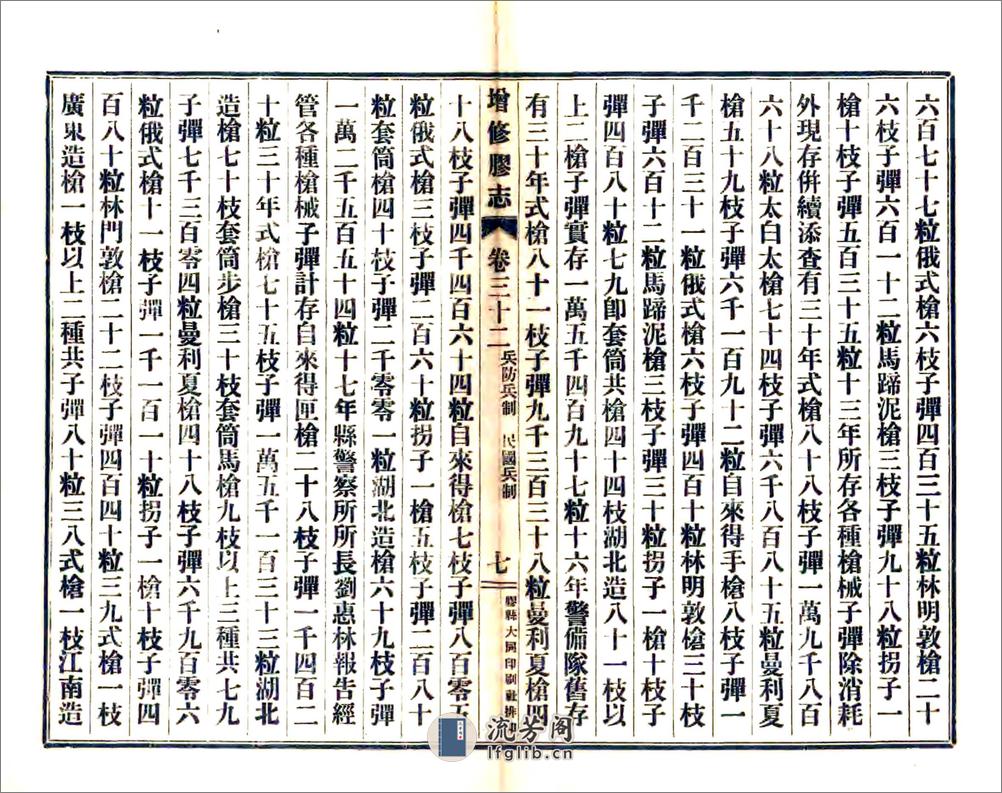 六百七十七粒俄式槍六枝子彈四百三十五粒林明敦槍二十
六枝子彈六百一十二粒馬蹄泥槍三枝子彈九十八粒拐子一
槍十枝子彈五百三十五粒十三年所存各種槍械子彈除消耗
外現存併續添查有三十年式槍八十八枝子彈一萬九千八百
六十八粒太白太槍七十四枝子彈六千八百八十五粒曼利夏
槍五十九枝子彈六千一百九十二粒自來得手槍八枝子彈一
千二百三十一粒俄式槍六枝子彈四百十粒林明敦槍三十枝
子彈六百十二粒馬蹄泥槍三枝子彈三十粒拐子一槍十枝子
彈四百八十粒七九卽套筒共槍四十四枝湖北造八十一枝以
上二槍子彈實存一萬五千四百九十七粒十六年警備隊舊存
有三十年式槍八十一枝子彈九千三百三十八粒曼利夏槍四
增修膠志 卷三十二 兵防兵制 民國兵制 七 膠縣大同印刷社排印
十八枝子彈四千四百六十四粒自來得槍七枝子彈八百零五
粒俄式槍三枝子彈二百六十粒拐子一槍五枝子彈二百八十
粒套筒槍四十枝子彈二千零零一粒湖北造槍六十九枝子彈
一萬二千五百五十四粒十七年縣警察所所長劉惠林報告經
管各種槍械子彈計存自來得匣槍二十八枝子彈一千四百二
十粒三十年式槍七十五枝子彈一萬五千一百三十三粒湖北
造槍七十枝套筒步槍三十枝套筒馬槍九枝以上三種共七九
子彈七千三百零四粒曼利夏槍四十八枝子彈六千九百零六
粒俄式槍十一枝子彈一千一百一十粒拐子一槍十枝子彈四
百八十粒林門敦槍二十二枝子彈四百四十粒三九式槍一枝
廣東造槍一枝以上二種共子彈八十粒三八式槍一枝江南造
流芳阁
lfglib.cn